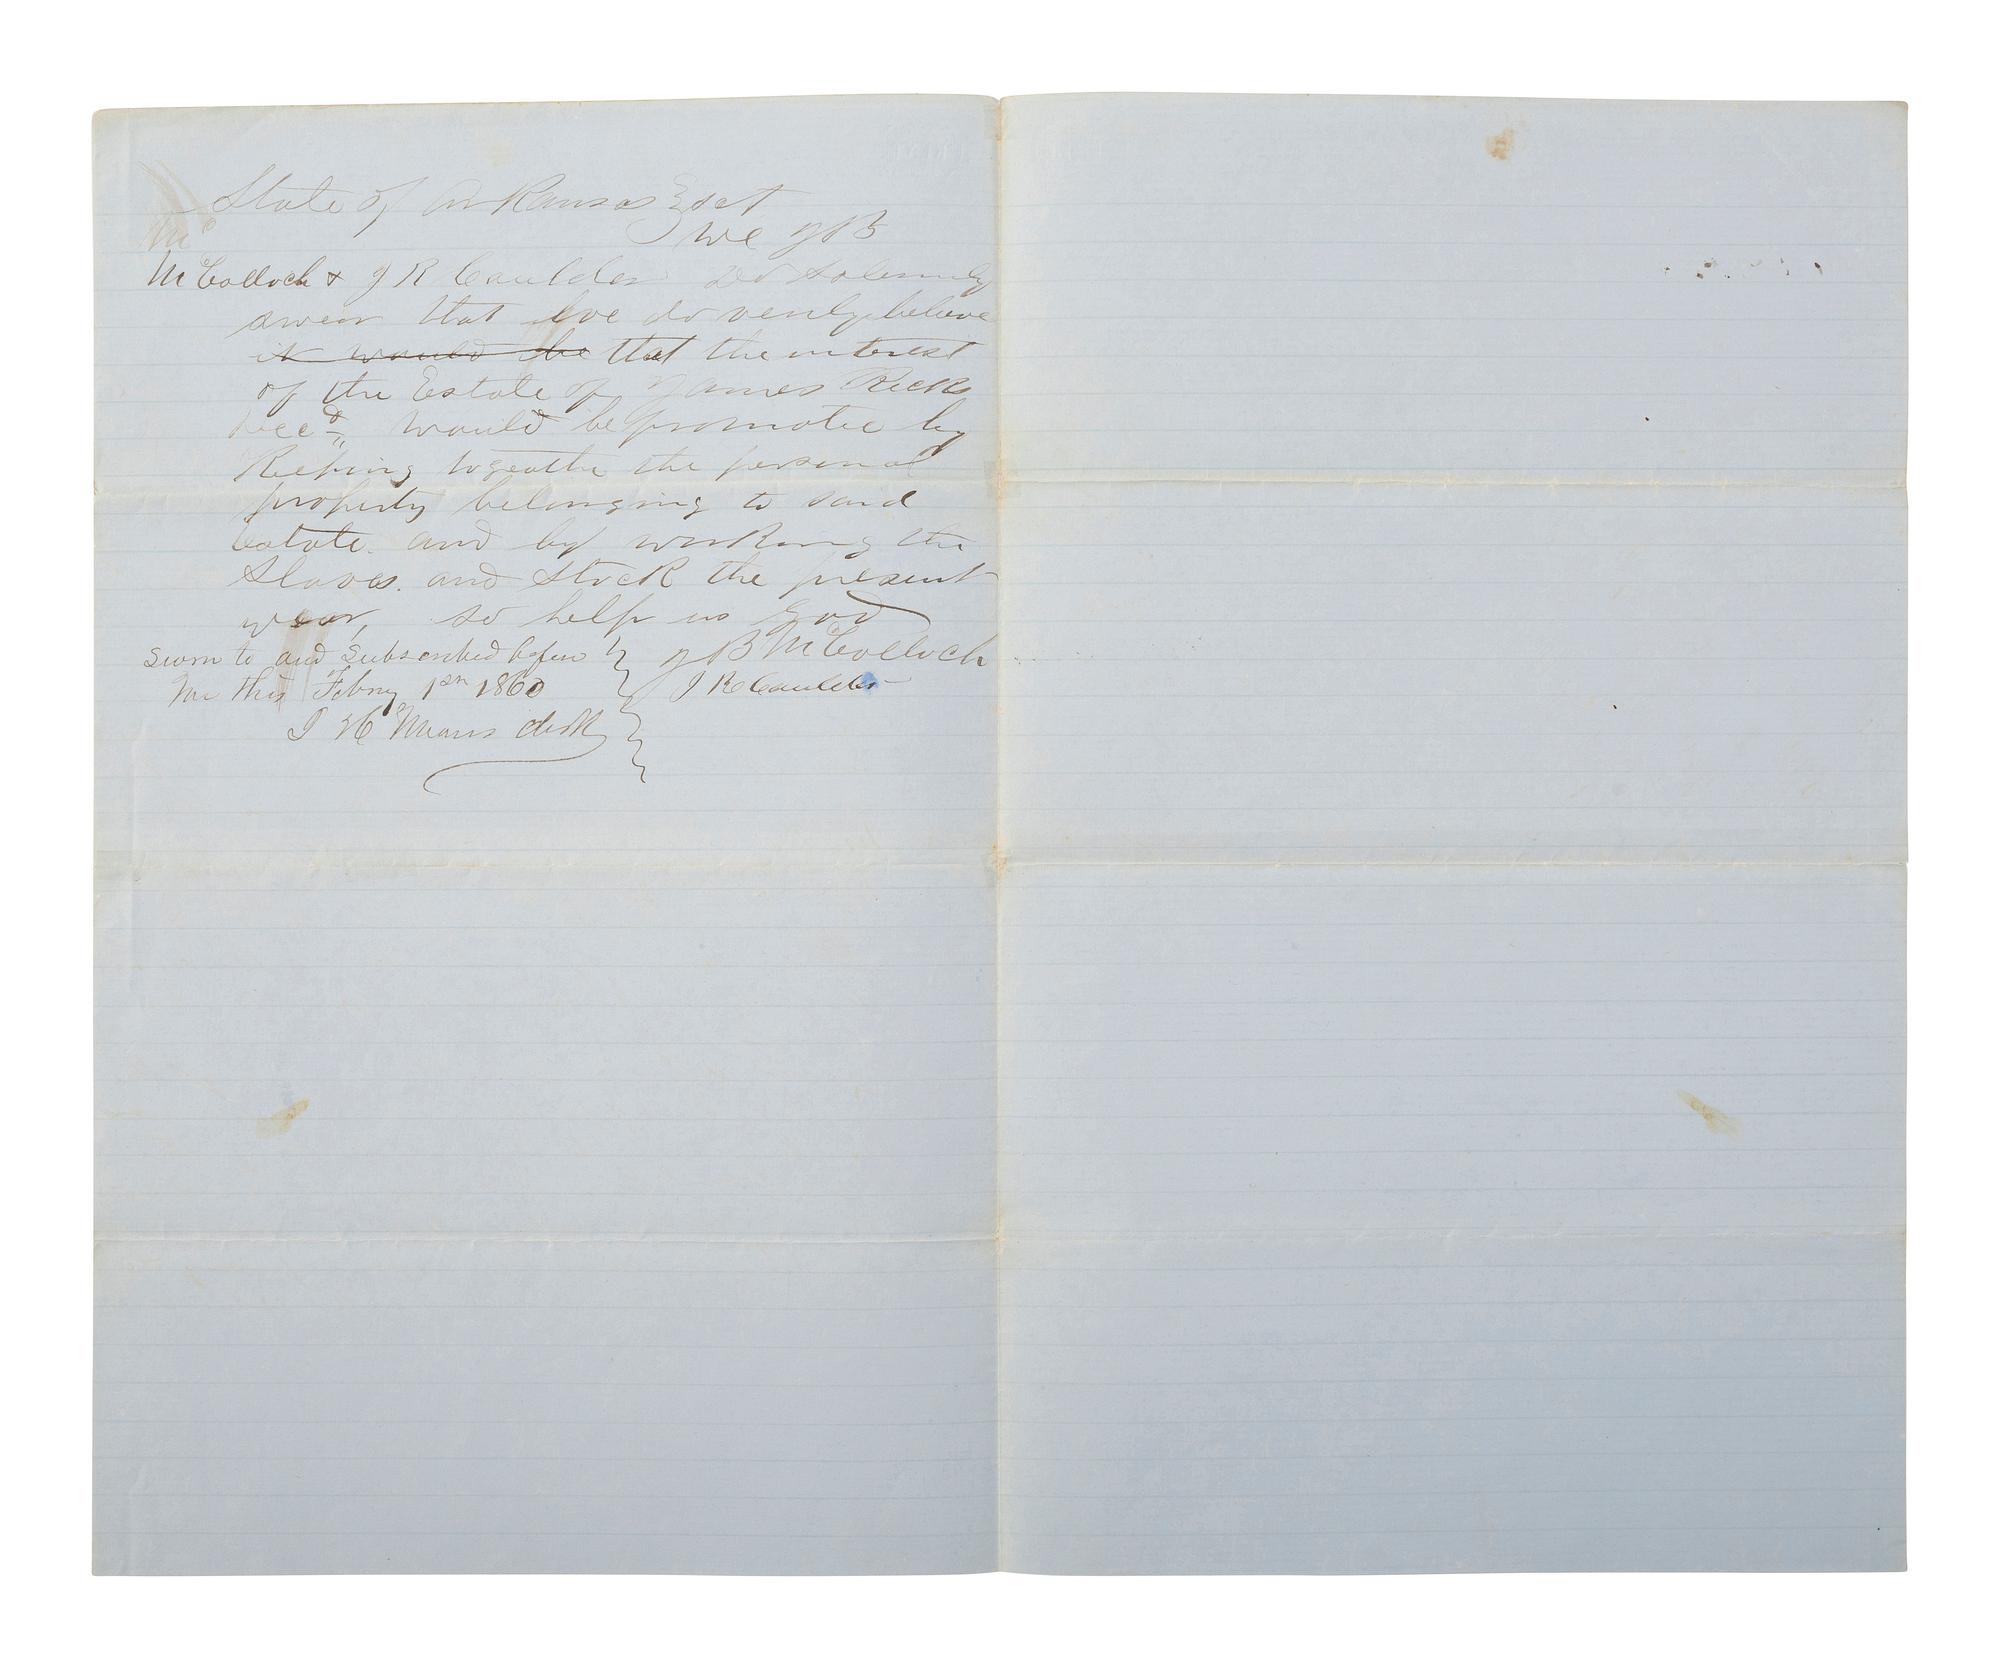 State of Arkansas } sct
We J B
Mc
McColloch & J R Caulder do solemnly
swear that we do verily believe
it would be that the interest
of the Estate of James Ricks
Decd, would be promoted by
Keeping togeathe the personal
property belonging to said
Estate. and by working the
Slaves. and Stock the present
year, so help us God
Sworn to and Subscribed before } J B McColloch
me this Febry 1st 1860 } J R Caulder
J H Means clerk